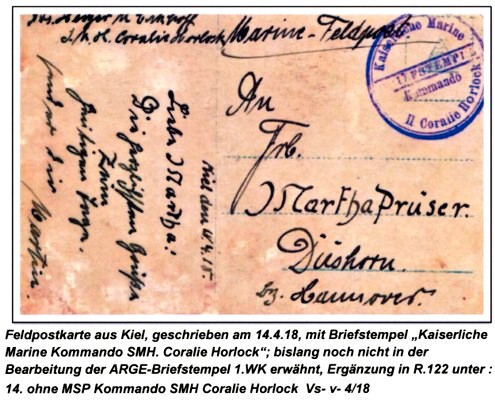 Coralie Horlock
Marine-Feldpost.
Kaiserliche Marine
Kommando
Coralie Horlock
An
Frl.
Martha Prüser.
Düshorn.
Bz. Hannover.
Kiel den
Liebe Martha!
Die herzlichsten Grüße
Zum
heutigen Tage.
sendet dir
Martin.
Feldpostkarte aus Kiel, geschrieben am 14.4.18, mit Briefstempel „Kaiserliche
Marine Kommando SMH. Coralie Horlock“; bislang noch nicht in der
Bearbeitung der ARGE-Briefstempel 1.WK erwähnt, Ergänzung in R.122 unter :
14. ohne MSP Kommando SMH Coralie Horlock Vs- v- 4/18